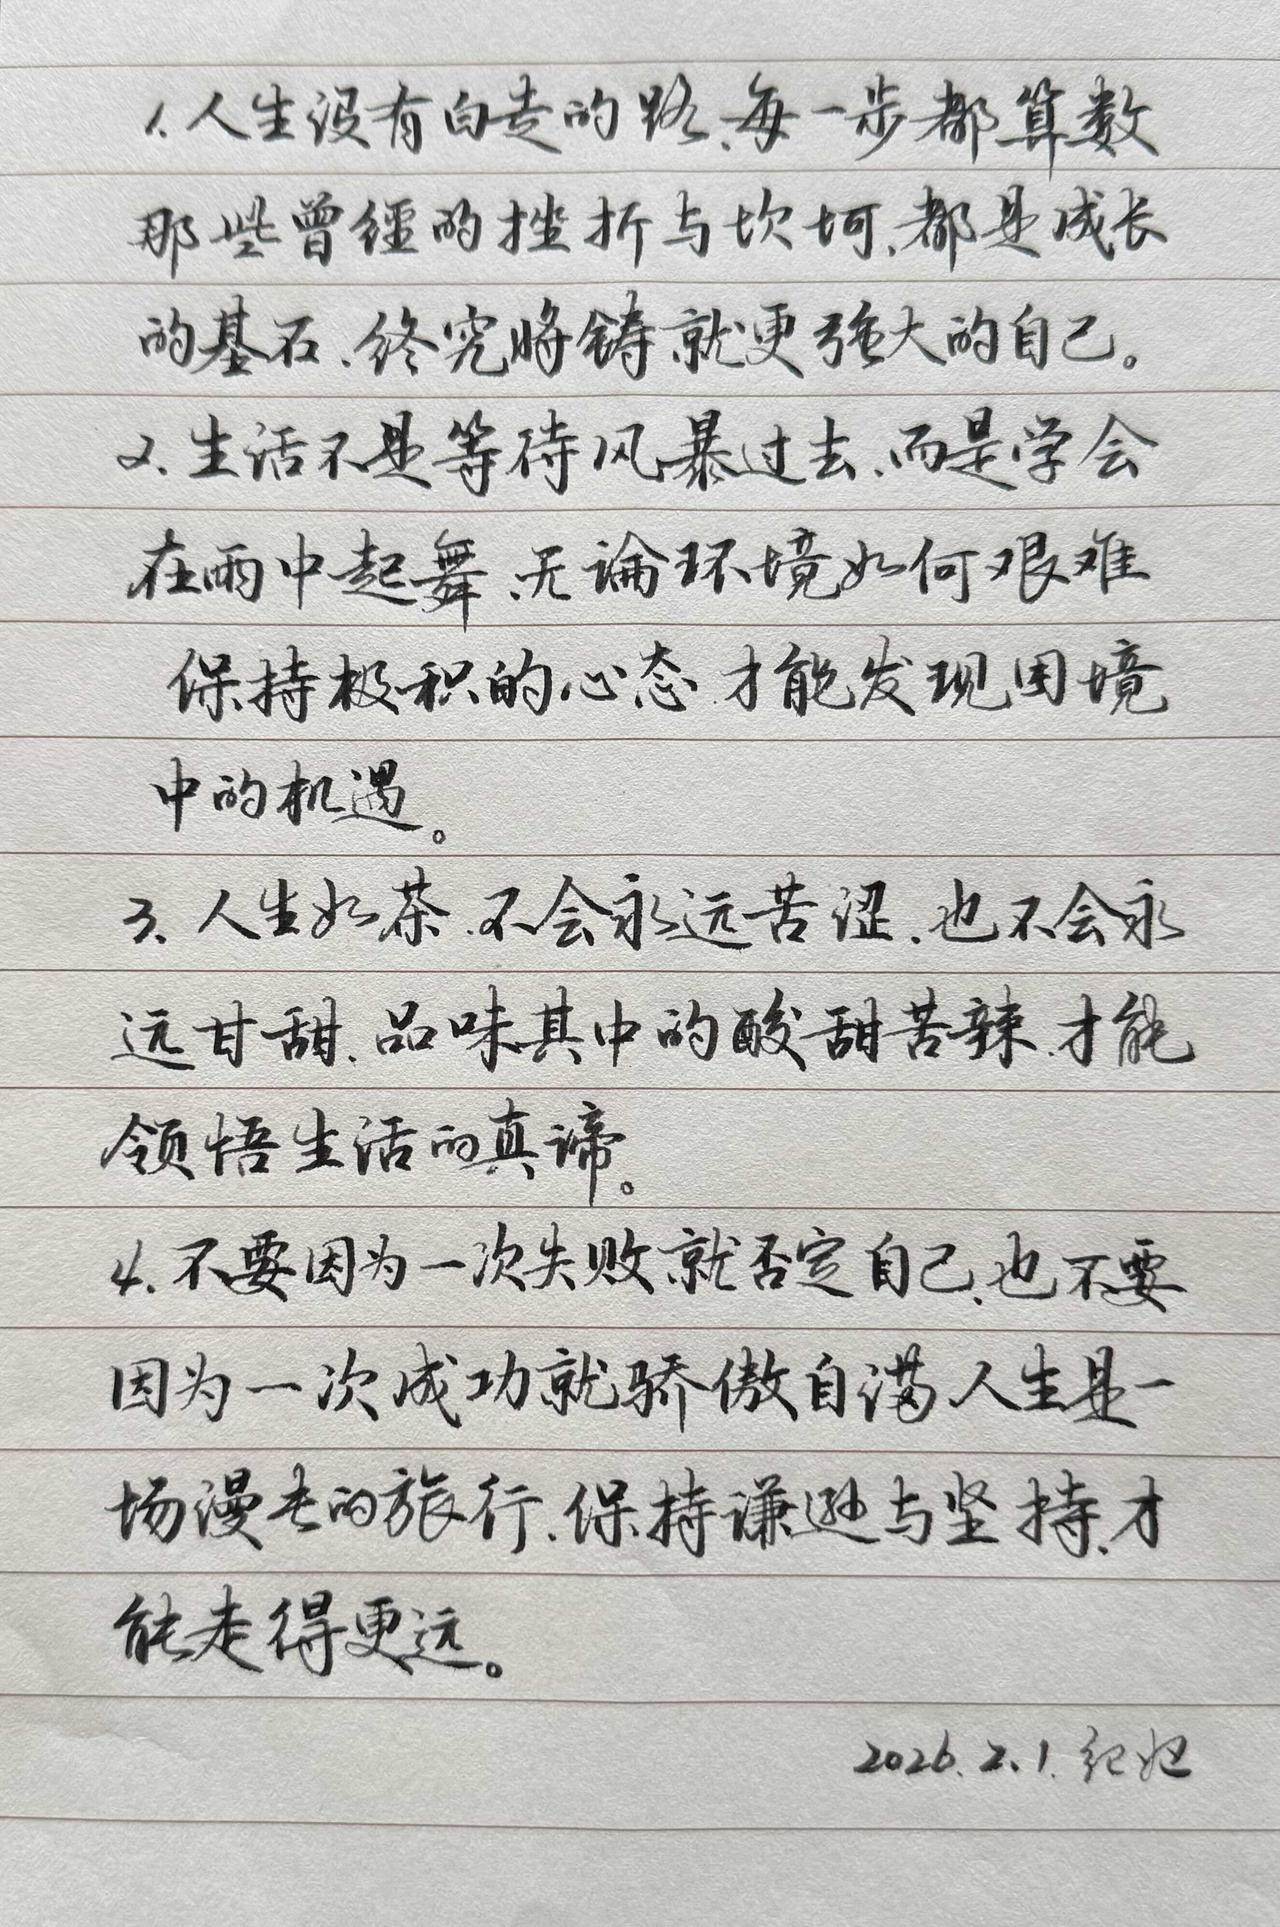 1.人生没有白走的路、每一步都算数
那些曾经的挫折与坎坷、都是成长
的基石、终究将铸就更强大的自己。
2、生活不是等待风暴过去、而是学会
在雨中起舞、无论环境如何艰难
保持极积的心态、才能发现困境
中的机遇。
3、人生如茶、不会永远苦涩、也不会永
远甘甜、品味其中的酸甜苦辣、才能
领悟生活的真谛。
4、不要因为一次失败、就否定自己、也不要
因为一次成功就骄傲自满 人生是一
场漫长的旅行、保持谦逊与坚持、才
能走得更远。
2026.2.1.